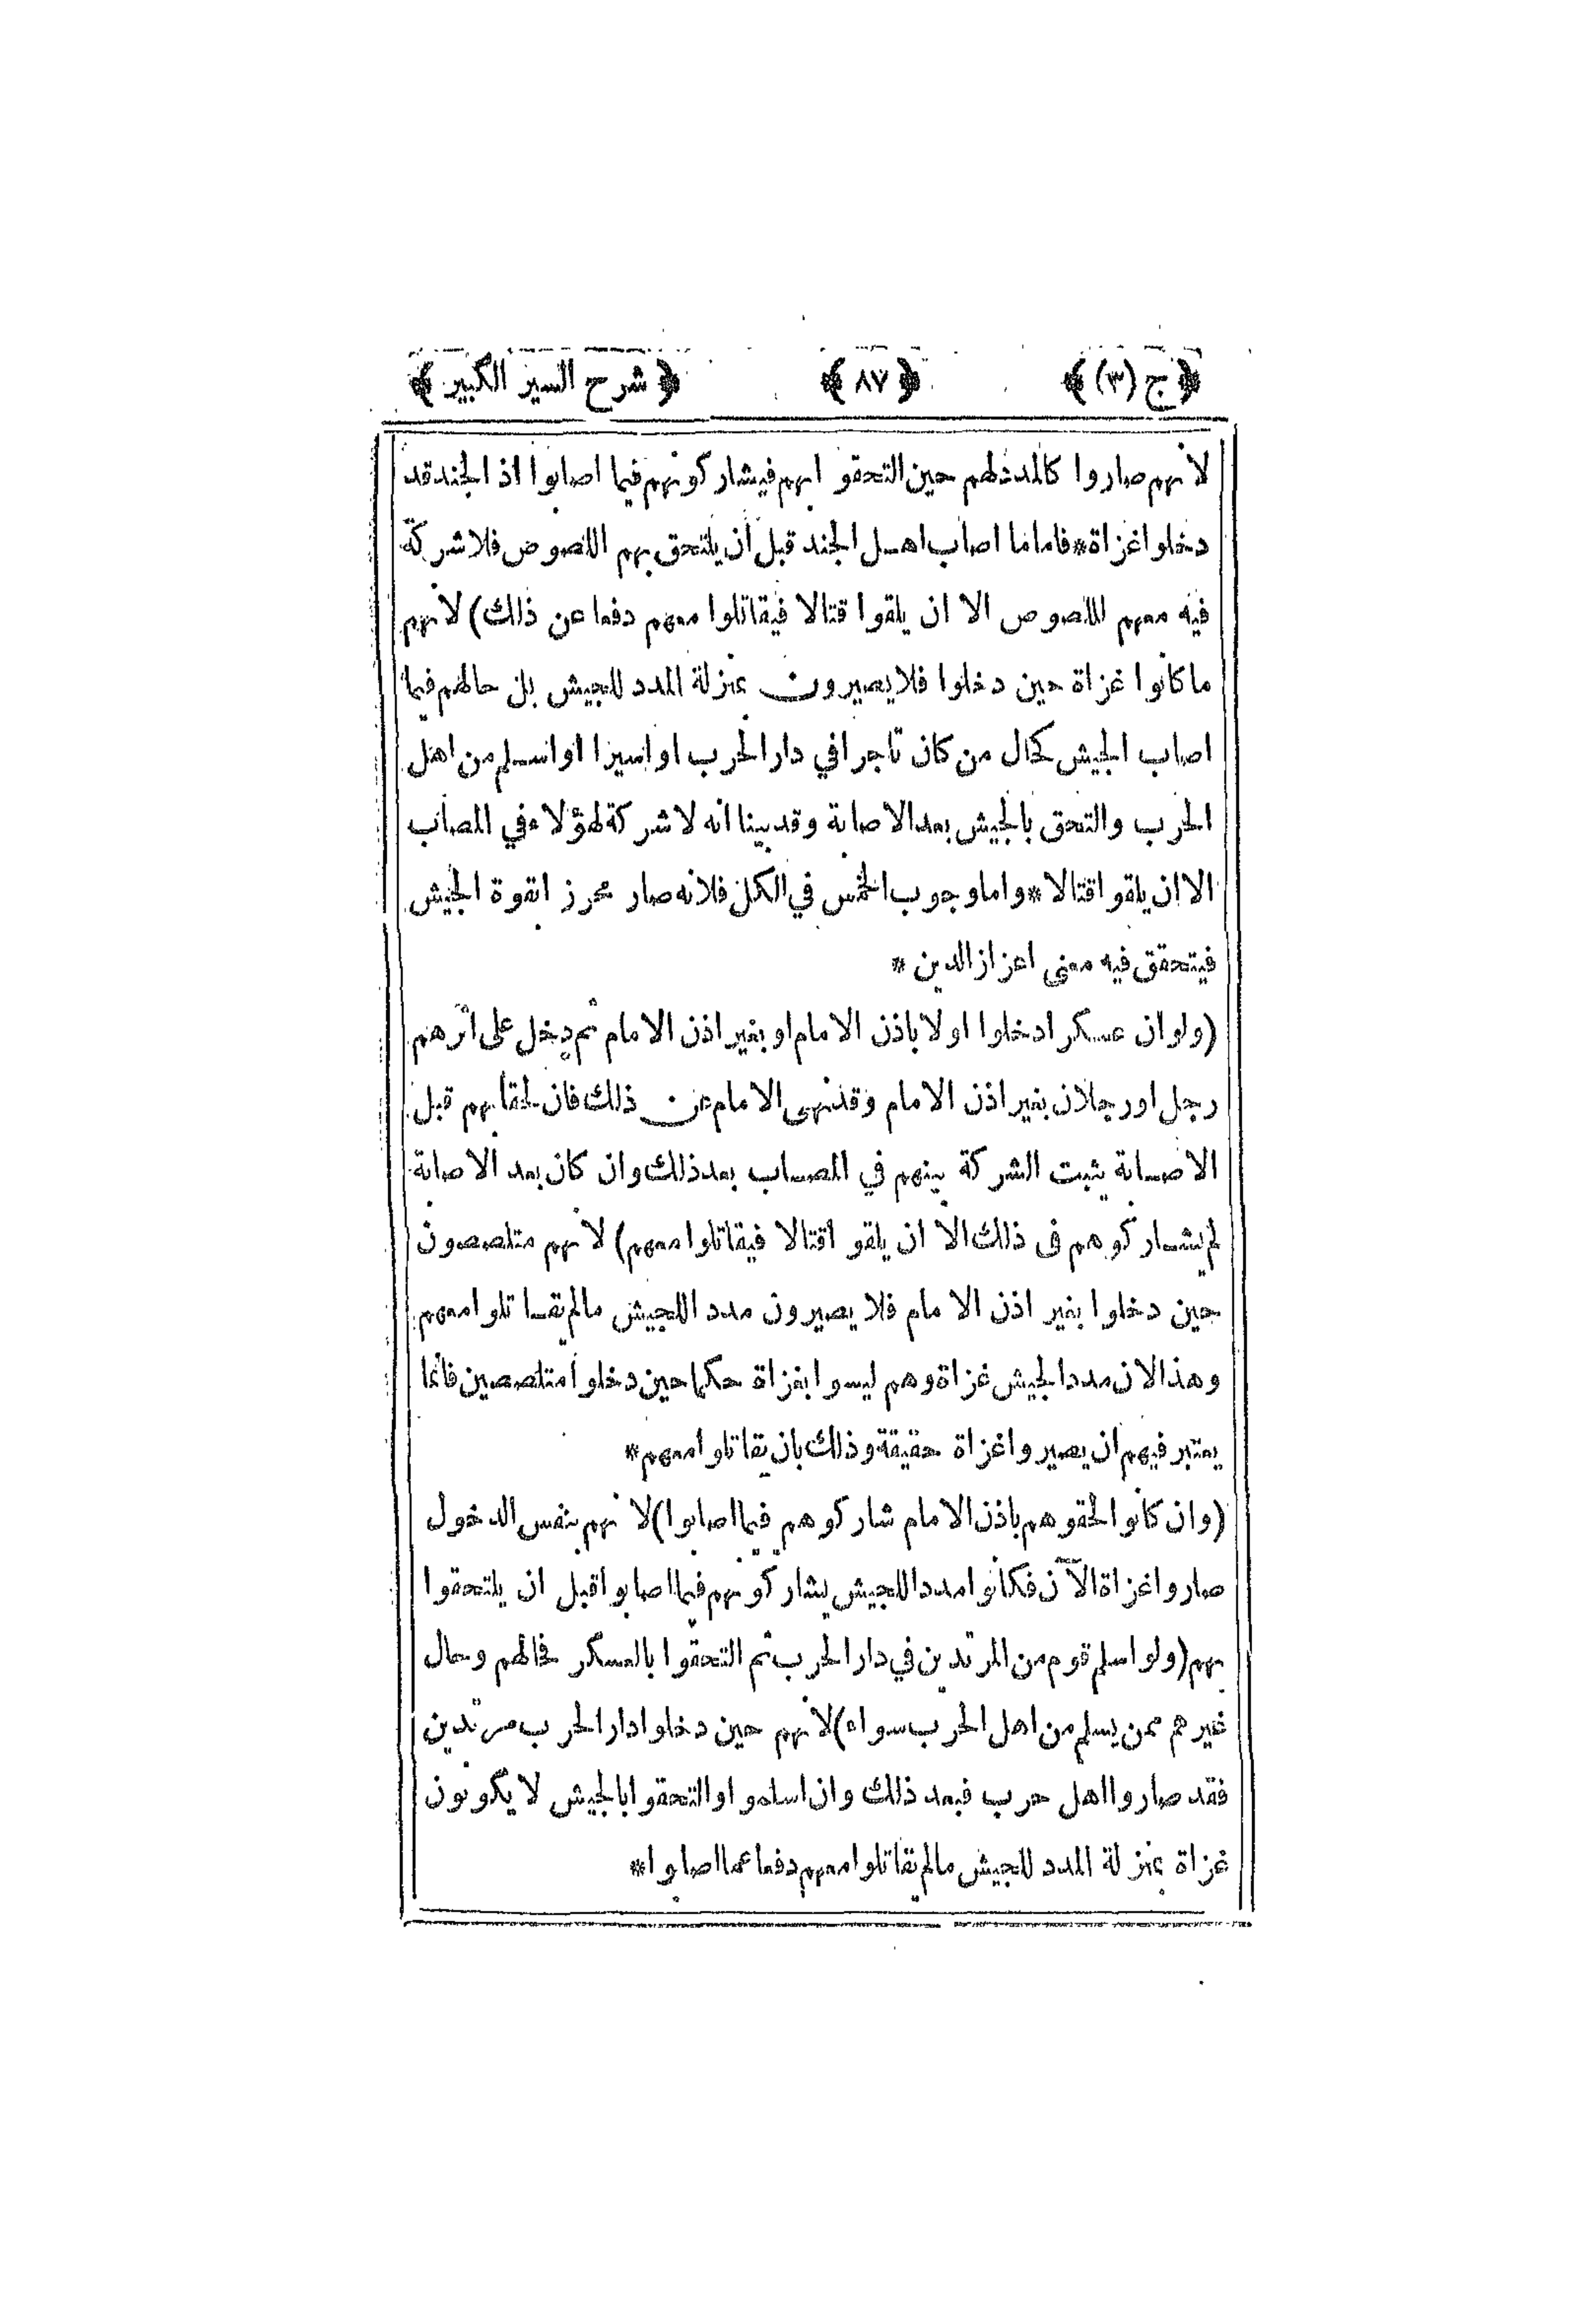 ﴿ ج (٣) ﴾ ﴿ ٨٧ ﴾ ﴿ شرح السير الكبير ﴾
لانهم صاروا كالمدد لهم حين التحقوا بهم فيشاركونهم فيما اصابوا اذ الجند قد
دخلوا غزاة * فاما ما اصاب اهل الجند قبل ان يلتحق بهم اللصوص فلا شركة
فيه معهم للصوص الا ان يلقوا قتالا فيقاتلوا معهم دفعا عن ذلك ) لانهم
ما كانوا غزاة حين دخلوا فلا يصيرون بمنزلة المدد للجيش بل حالهم فيما
اصاب الجيش كحال من كان تاجرا في دار الحرب او اسيرا او اسلم من اهل
الحرب والتحق بالجيش بعد الاصابة وقد بينا انه لا شركة لهؤلاء في المصاب
الا ان يلقوا قتالا * واما وجوب الخمس في الكل فلانه صار محرزا بقوة الجيش
فيتحقق فيه معنى اعزاز الدين *
( ولو ان عسكرا دخلوا اولا باذن الامام او بغير اذن الامام ثم دخل على اثرهم
رجل او رجلان بغير اذن الامام وقد نهى الامام عن ذلك فان لحقا بهم قبل
الاصابة يثبت الشركة بينهم في المصاب بعد ذلك وان كان بعد الاصابة
لم يشاركوهم فى ذلك الا ان يلقوا قتالا فيقاتلوا معهم ) لانهم متلصصون
حين دخلوا بغير اذن الامام فلا يصيرون مددا للجيش مالم يقاتلوا معهم
وهذا لان مدد الجيش غزاة وهم ليسوا بغزاة حكما حين دخلوا متلصصين فانما
يعتبر فيهم ان يصيروا غزاة حقيقة وذلك بان يقاتلوا معهم *
( وان كانوا لحقوهم باذن الامام شاركوهم فيما اصابوا ) لانهم بنفس الدخول
صاروا غزاة الآن فكانوا مددا للجيش يشاركونهم فيما اصابوا قبل ان يلتحقوا
بهم ( ولو اسلم قوم من المرتدين في دار الحرب ثم التحقوا بالعسكر فحالهم وحال
غيرهم ممن يسلم من اهل الحرب سواء ) لانهم حين دخلوا دار الحرب مرتدين
فقد صاروا اهل حرب فبعد ذلك وان اسلموا والتحقوا بالجيش لا يكونون
غزاة بمنزلة المدد للجيش مالم يقاتلوا معهم دفعا عما اصابوا *